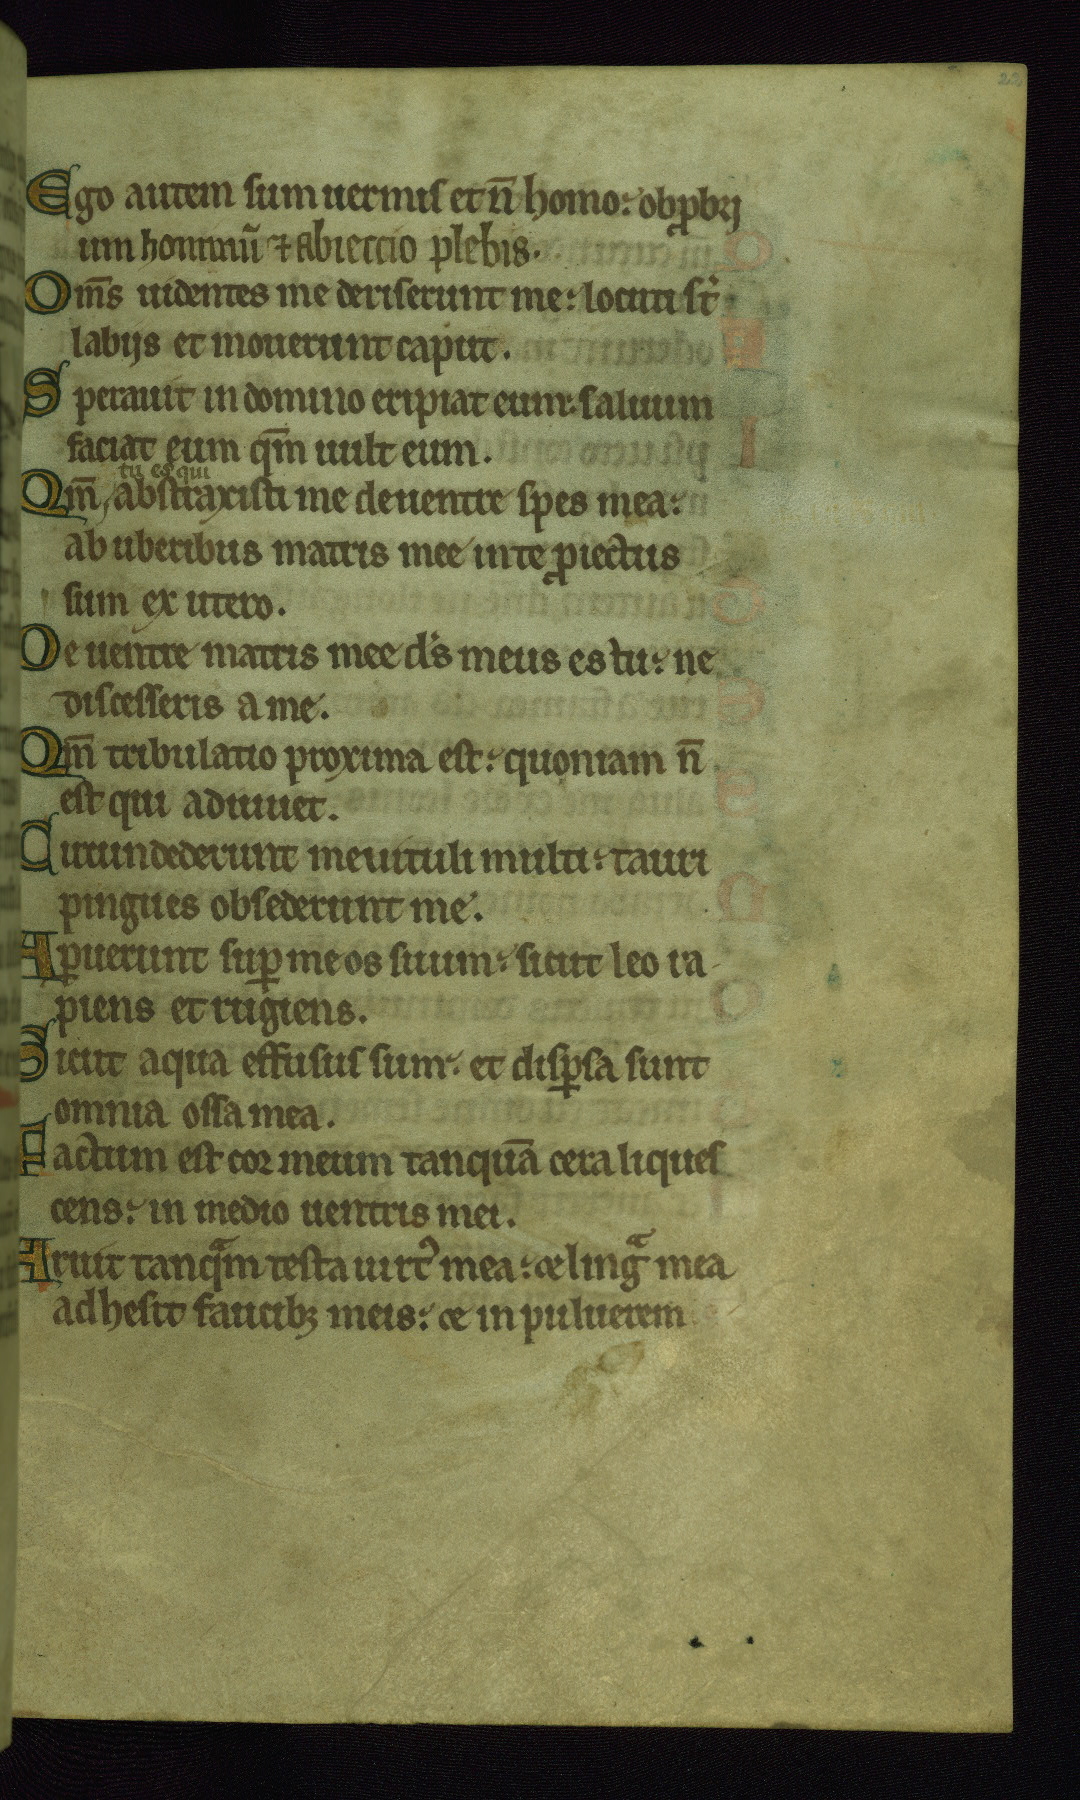 22
Ego autem sum uermis et n̄ homo: obꝓbrij
um hominū ⁊ abieccio plebis.
Om̄s uidentes me deriserunt me: locuti st̄
labijs et mouerunt caput.
Sperauit in domino eripiat eum: saluum
faciat eum qm̄ uult eum.
tu es qui
Qm̄ abstraxisti me de uentre spes mea:
ab uberibus matris mee in te ꝓiectus
sum ex utero.
De uentre matris mee ds̄ meus es tu: ne
discesseris a me.
Qm̄ tribulatio proxima est: quoniam n̄
est qui adiuuet.
Circundederunt me uituli multi: tauri
pingues obsederunt me.
Aꝑuerunt suꝑ me os suum: sicut leo ra
piens et rugiens.
Sicut aqua effusus sum: et disꝑsa sunt
omnia ossa mea.
Factum est cor meum tanquā cera liques
cens: in medio uentris mei.
Aruit tanqᵃm testa uirtꝰ mea: et lingᵃ mea
adhesit faucibꝫ meis: et in puluerem